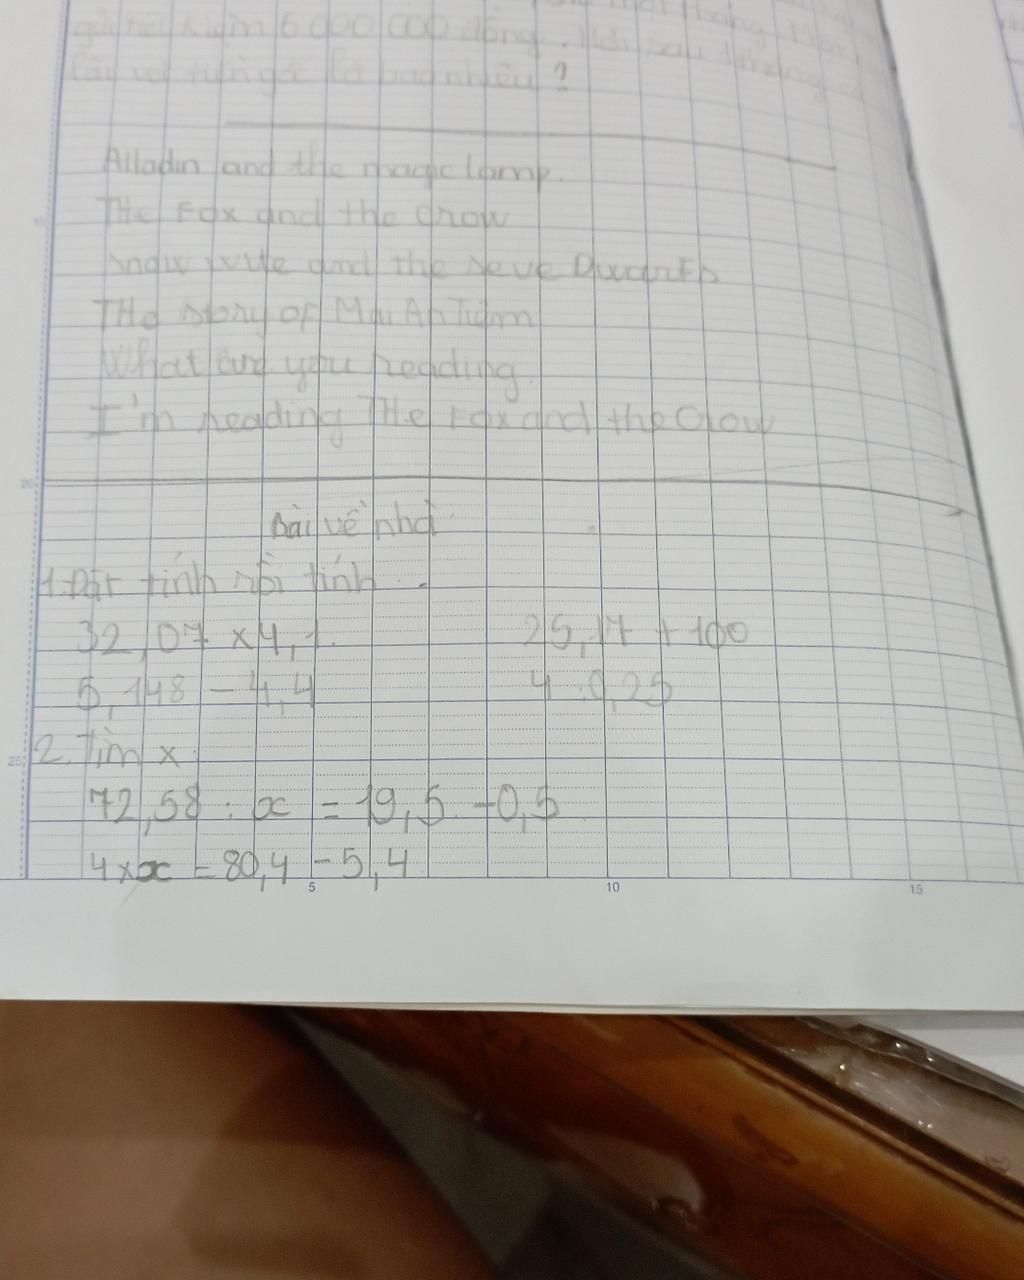 gửi tiết kiệm 6 000 000 đồng. Hỏi sau 1 tháng
lãi và tiền gốc là bao nhiêu ?
Alladin and the magic lamp.
THe Fox and the Crow
snow wite and the seve Dwarfs
THe story of Mai An Tiêm
What are you reading.
I'm reading THe Fox and the Crow
Bài về nhà
1. Đặt tính rồi tính.
32,07 x 4,1 25,17 + 100
5,148 - 4,4 4 : 0,25
2. Tìm x
72,58 : x = 19,5 - 0,5
4 x x = 80,4 - 5,4
20
25
5 10 15